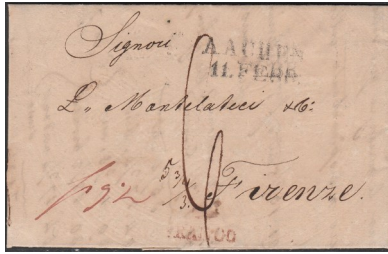 Signori
AACHEN
11. FEBR.
L. Mantelatici & C:
5 3/4
/3.
6
Firenze.
FRANCO